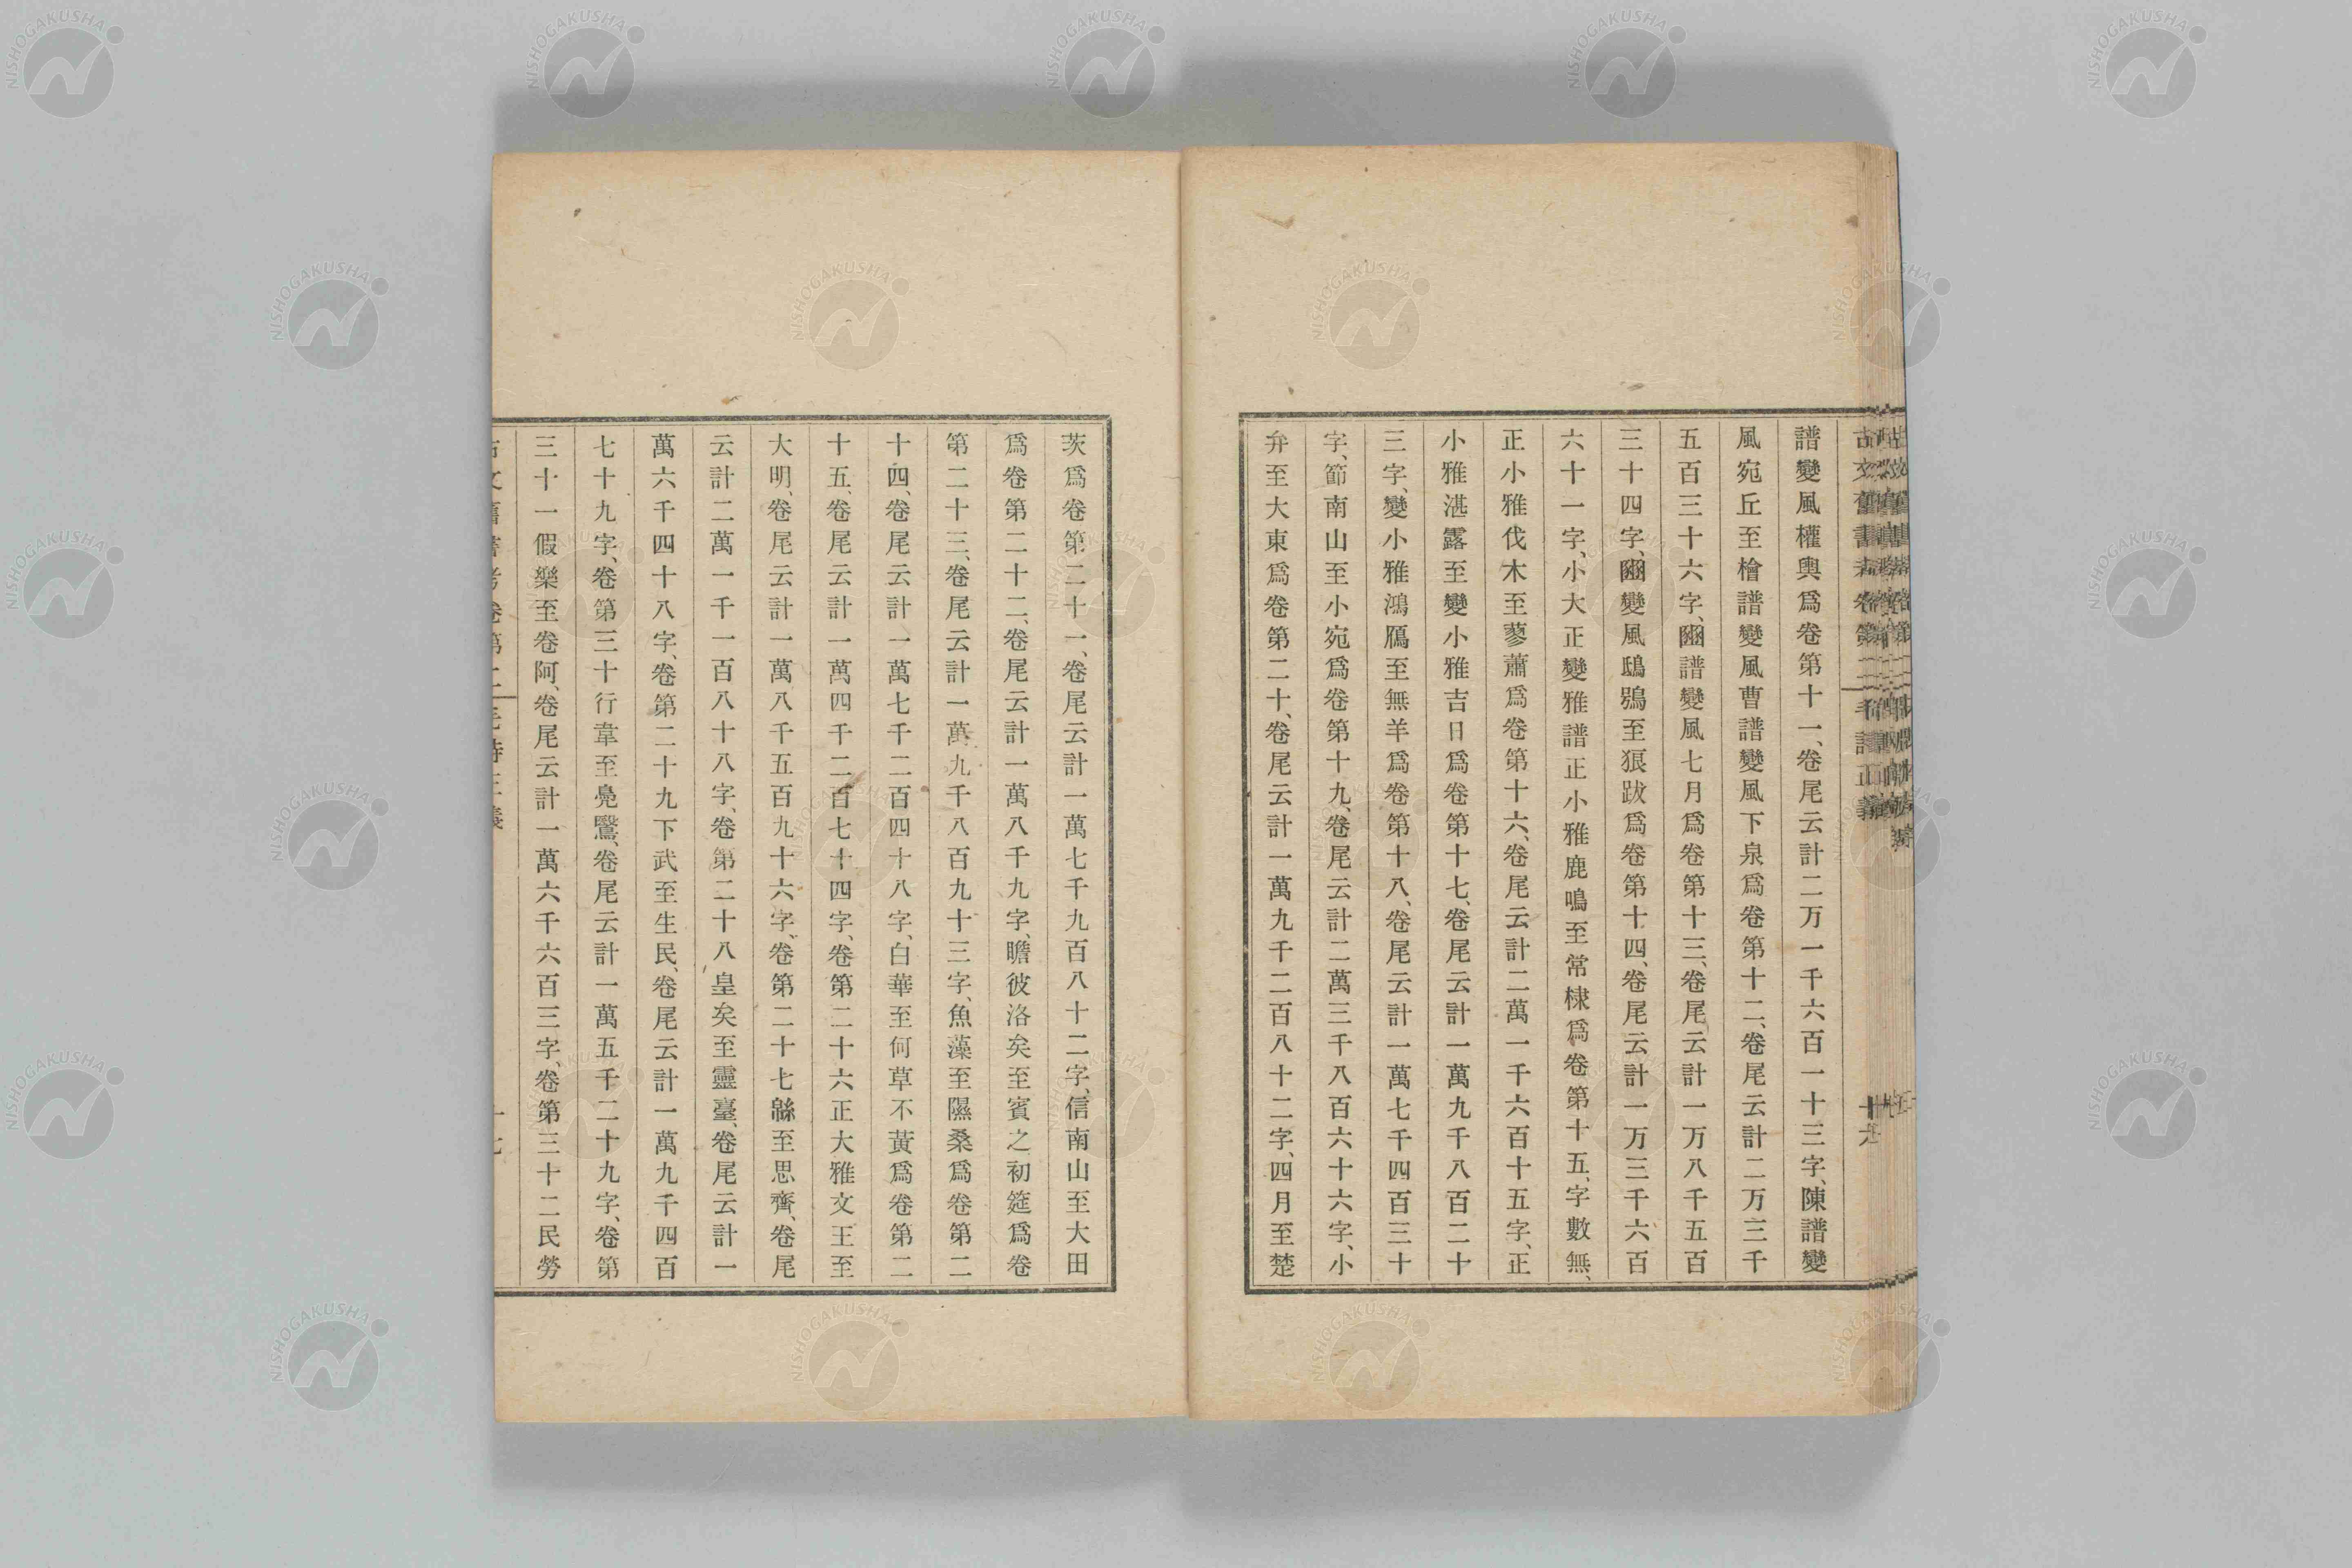 譜變風權輿爲卷第十一、卷尾云計二万一千六百一十三字、陳譜變
風宛丘至檜譜變風曹譜變風下泉爲卷第十二、卷尾云計二万三千
五百三十六字、豳譜變風七月爲卷第十三、卷尾云計一万八千五百
三十四字、豳變風鴟鴞至狼跋爲卷第十四、卷尾云計一万三千六百
六十一字、小大正變雅譜正小雅鹿鳴至常棣爲卷第十五、字數無、
正小雅伐木至蓼蕭爲卷第十六、卷尾云計二萬一千六百十五字、正
小雅湛露至變小雅吉日爲卷第十七、卷尾云計一萬九千八百二十
三字、變小雅鴻鴈至無羊爲卷第十八、卷尾云計一萬七千四百三十
字、節南山至小宛爲卷第十九、卷尾云計二萬三千八百六十六字、小
弁至大東爲卷第二十、卷尾云計一萬九千二百八十二字、四月至楚
茨爲卷第二十一、卷尾云計一萬七千九百八十二字、信南山至大田
爲卷第二十二、卷尾云計一萬八千九字、瞻彼洛矣至賓之初筵爲卷
第二十三、卷尾云計一萬九千八百九十三字、魚藻至隰桑爲卷第二
十四、卷尾云計一萬七千二百四十八字、白華至何草不黃爲卷第二
十五、卷尾云計一萬四千二百七十四字、卷第二十六正大雅文王至
大明、卷尾云計一萬八千五百九十六字、卷第二十七緜至思齊、卷尾
云計二萬一千一百八十八字、卷第二十八皇矣至靈臺、卷尾云計一
萬六千四十八字、卷第二十九下武至生民、卷尾云計一萬九千四百
七十九字、卷第三十行葦至鳧鷖、卷尾云計一萬五千二十九字、卷第
三十一假樂至卷阿、卷尾云計一萬六千六百三字、卷第三十二民勞